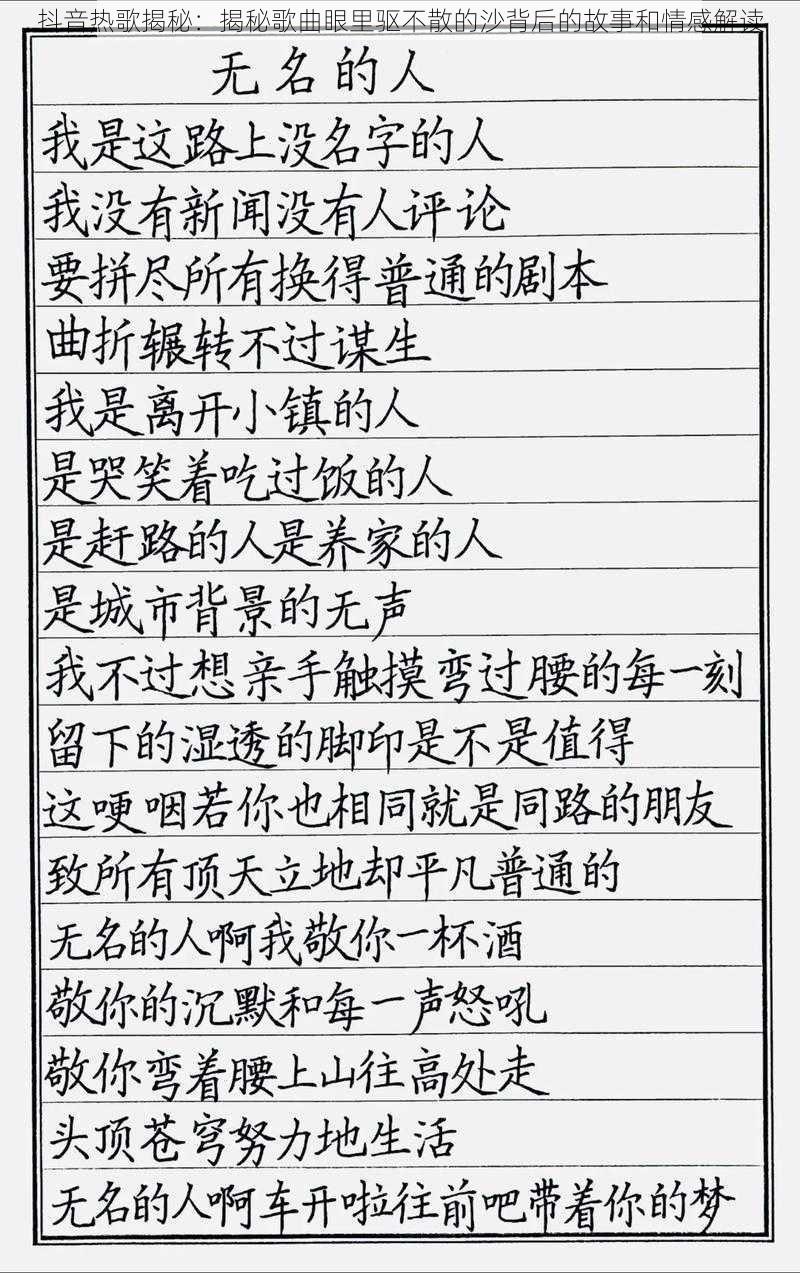 抖音热歌揭秘：揭秘歌曲眼里驱不散的沙背后的故事和情感解读
无名的人
我是这路上没名字的人
我没有新闻没有人评论
要拼尽所有换得普通的剧本
曲折辗转不过谋生
我是离开小镇的人
是哭笑着吃过饭的人
是赶路的人是养家的人
是城市背景的无声
我不过想亲手触摸弯过腰的每一刻
留下的湿透的脚印是不是值得
这哽咽若你也相同就是同路的朋友
致所有顶天立地却平凡普通的
无名的人啊我敬你一杯酒
敬你的沉默和每一声怒吼
敬你弯着腰上山往高处走
头顶苍穹努力地生活
无名的人啊车开啦往前吧带着你的梦